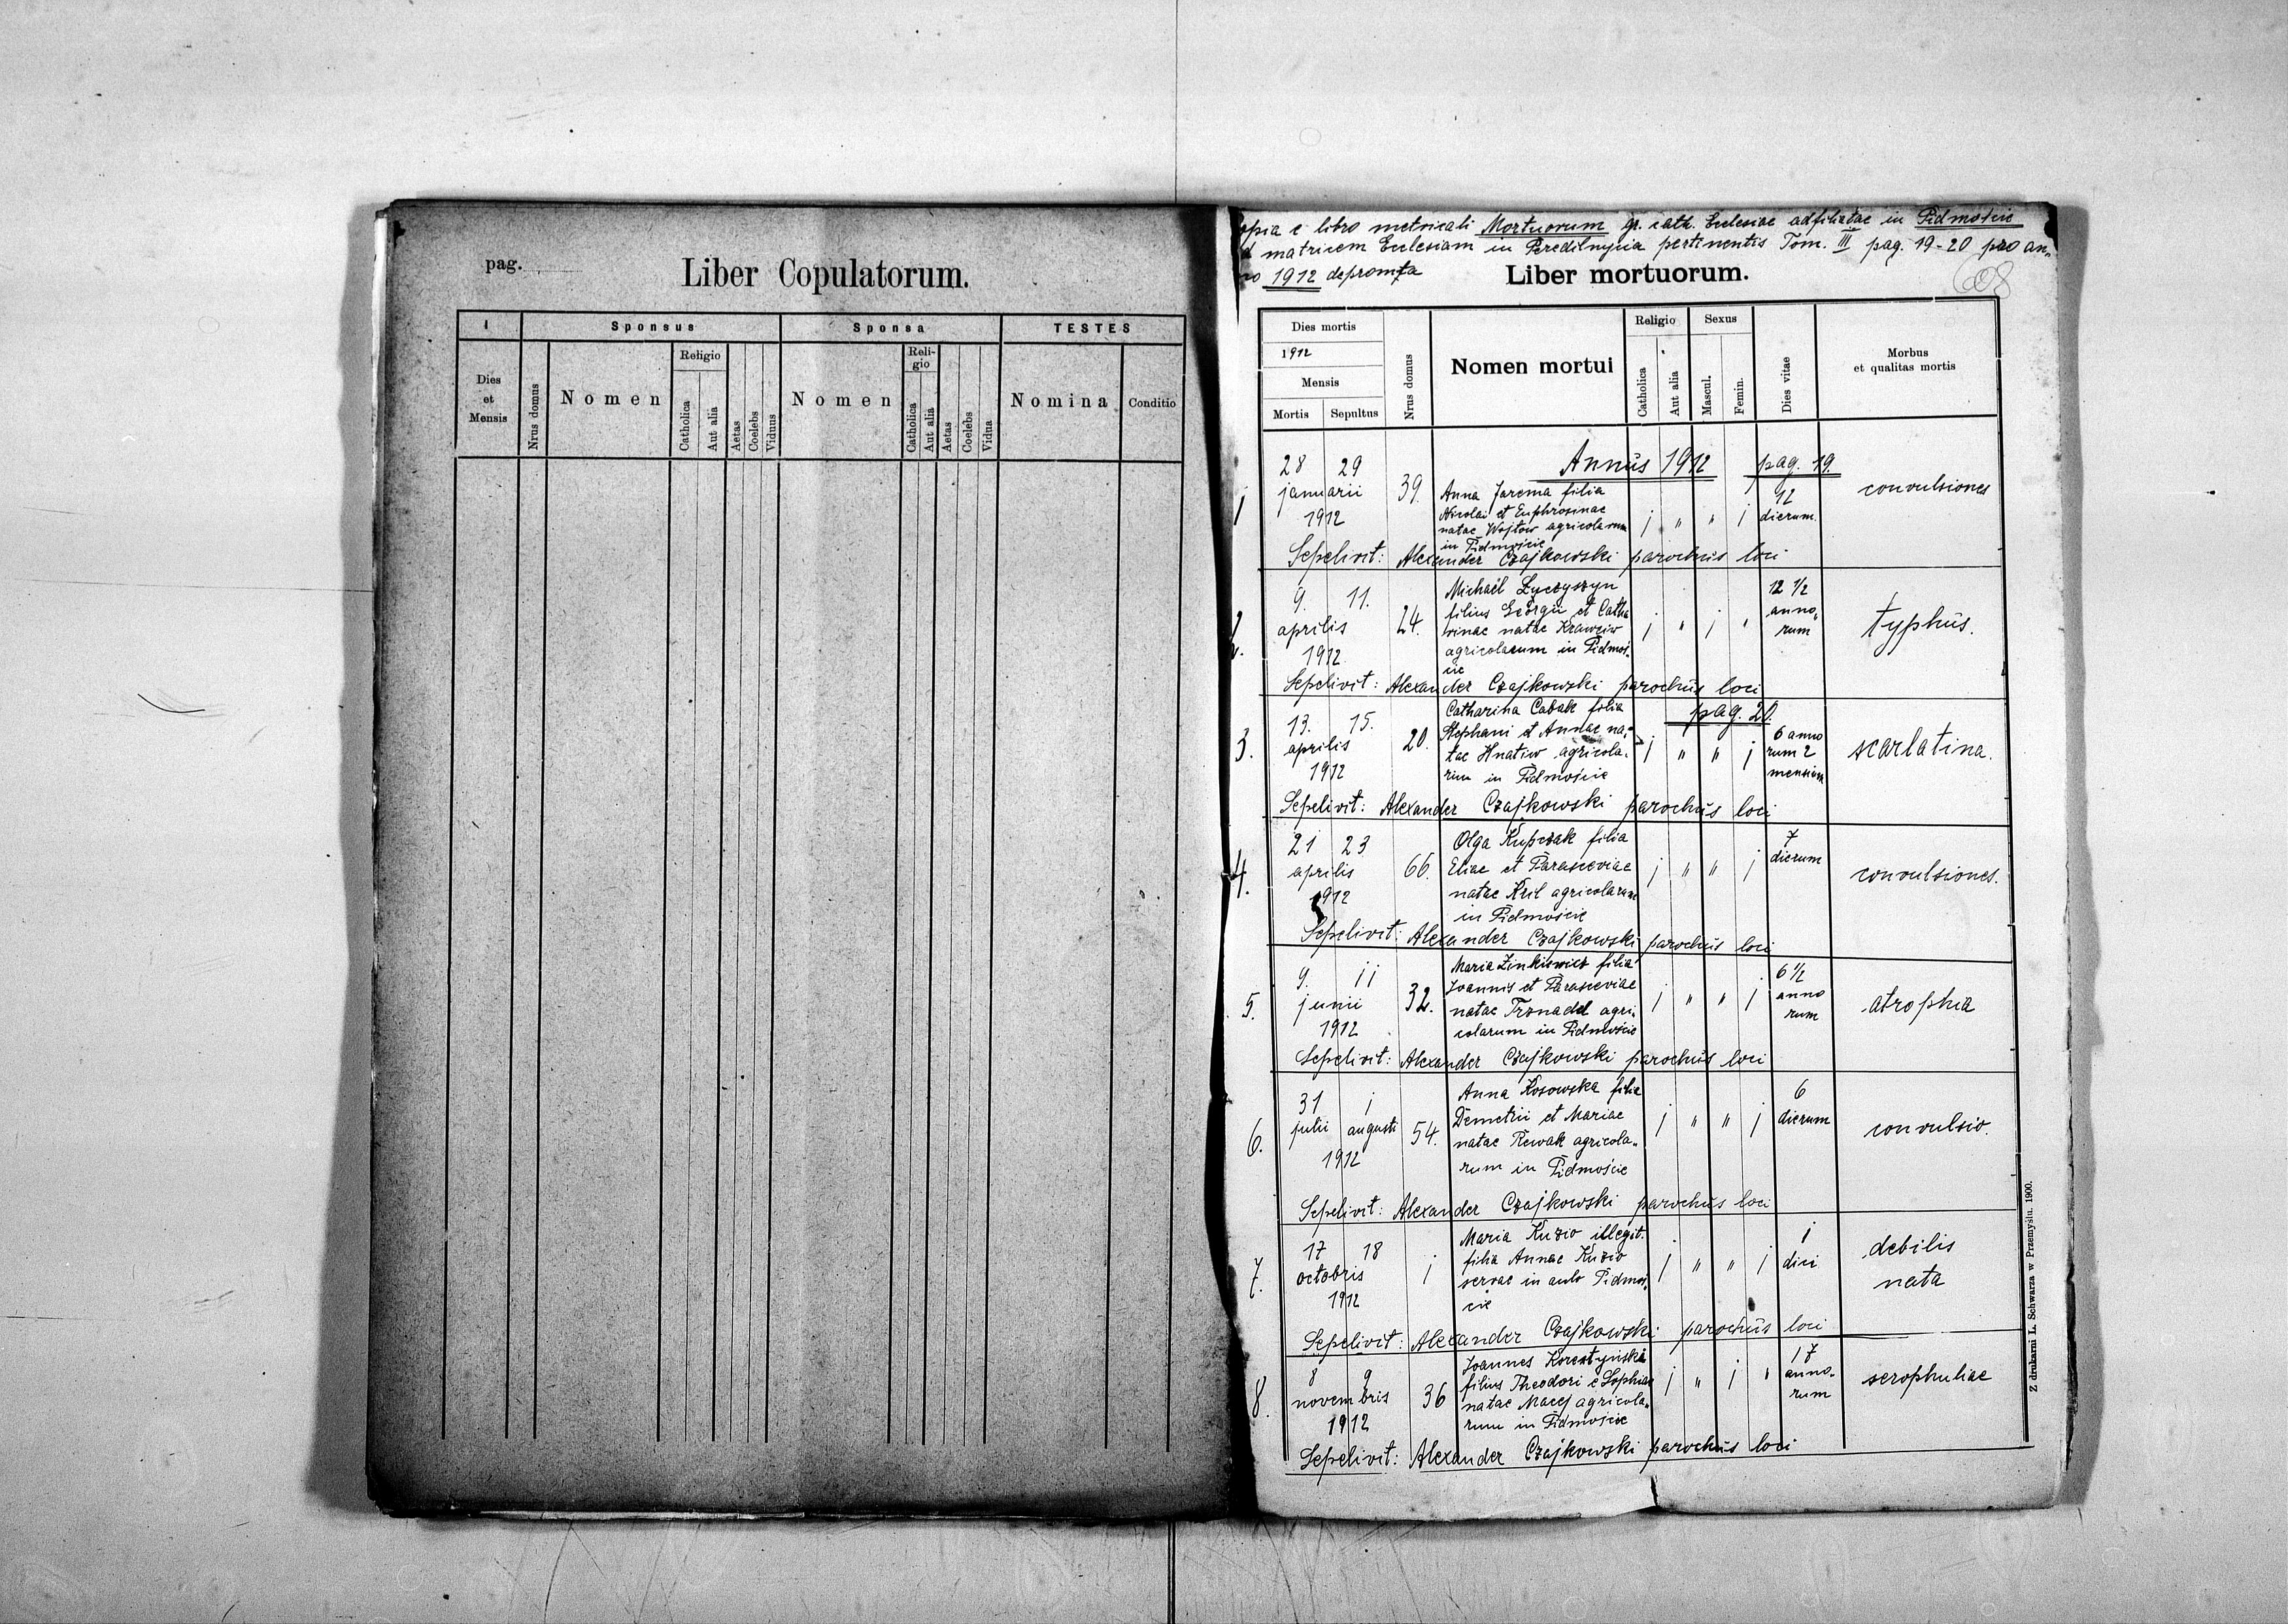 pag.
Liber Copulatorum.
1
Sponsus
Sponsa
TESTES
Dies
et
Mensis
Nrus domus
Nomen
Religio
Catholica
Aut alia
Aetas
Coelebs
Viduus
Nomen
Reli-
gio
Catholica
Aut alia
Aetas
Coelebs
Vidua
Nomina
Conditio
opia e libro metricali Mortuorum gr. cath. Ecclesiae adfiliatae in Pidmoście
d matricem Ecclesiam in Peredilnycia pertinentis Tom. III pag. 19-20 pro an„
no 1912 depromta
Liber mortuorum.
608
Dies mortis
1912
Mensis
Mortis
Sepultus
Nrus domus
Nomen mortui
Religio
Catholica
Aut alia
Sexus
Mascul.
Femin.
Dies vitae
Morbus
et qualitas mortis
Annus 1912 pag. 19.
1
28 29
januarii
1912
39.
Anna Jarema filia
Nicolai et Euphrosinae
natae Wojtow agricolarum
in Pidmoście
j " " j
12
dierum.
convulsiones
Sepelivit: Alexander Czajkowski parochus loci
2.
9. 11.
aprilis
1912.
24.
Michaël Łyczyszyn
filius Georgii et Catha
rinae natae Krawciw
agricolarum in Pidmoś„
cie
j " j "
12 1/2
anno„
rum
typhus.
Sepelivit: Alexander Czajkowski parochus loci
pag. 20.
3.
13. 15.
aprilis
1912
20.
Catharina Cabak filia
Stephani et Annae na„
tae Hnatiw agricola„
rum in Pidmoście
j " " j
6 anno
rum 2
mensium
scarlatina.
Sepelivit: Alexander Czajkowski parochus loci
4.
21 23
aprilis
1912
66.
Olga Kupczak filia
Eliae et Parasceviae
natae Kril agricolarum
in Pidmoście
j " " j
7
dierum
convulsiones.
Sepelivit: Alexander Czajkowski parochus loci
5.
9. 11
junii
1912
32.
Maria Zinkiewicz filia
Joannis et Parasceviae
natae Trznadel agri„
colarum in Pidmoście
j " " j
6 1/2
anno
rum
atrophia
Sepelivit: Alexander Czajkowski parochus loci
6.
31 1
julii augusti
1912
54.
Anna Kosowska filia
Demetrii et Mariae
natae Rewak agricola„
rum in Pidmoście
j " " j
6
dierum
convulsio.
Sepelivit: Alexander Czajkowski parochus loci
7.
17 18
octobris
1912
j
Maria Kuzio illegit.
filia Annae Kuzio
servae in aula Pidmoś„
cie
j " " j
1
diei
debilis
nata
Sepelivit: Alexander Czajkowski parochus loci
8.
8 9
novembris
1912
36
Joannes
filius Theodori e Sophiae
natae Maciej agricola„
rum in Pidmoście
j " j "
17
anno„
rum
scrophuliae
Sepelivit: Alexander Czajkowski parochus loci
Z drukarni L. Schwarza w Przemyślu. 1900.